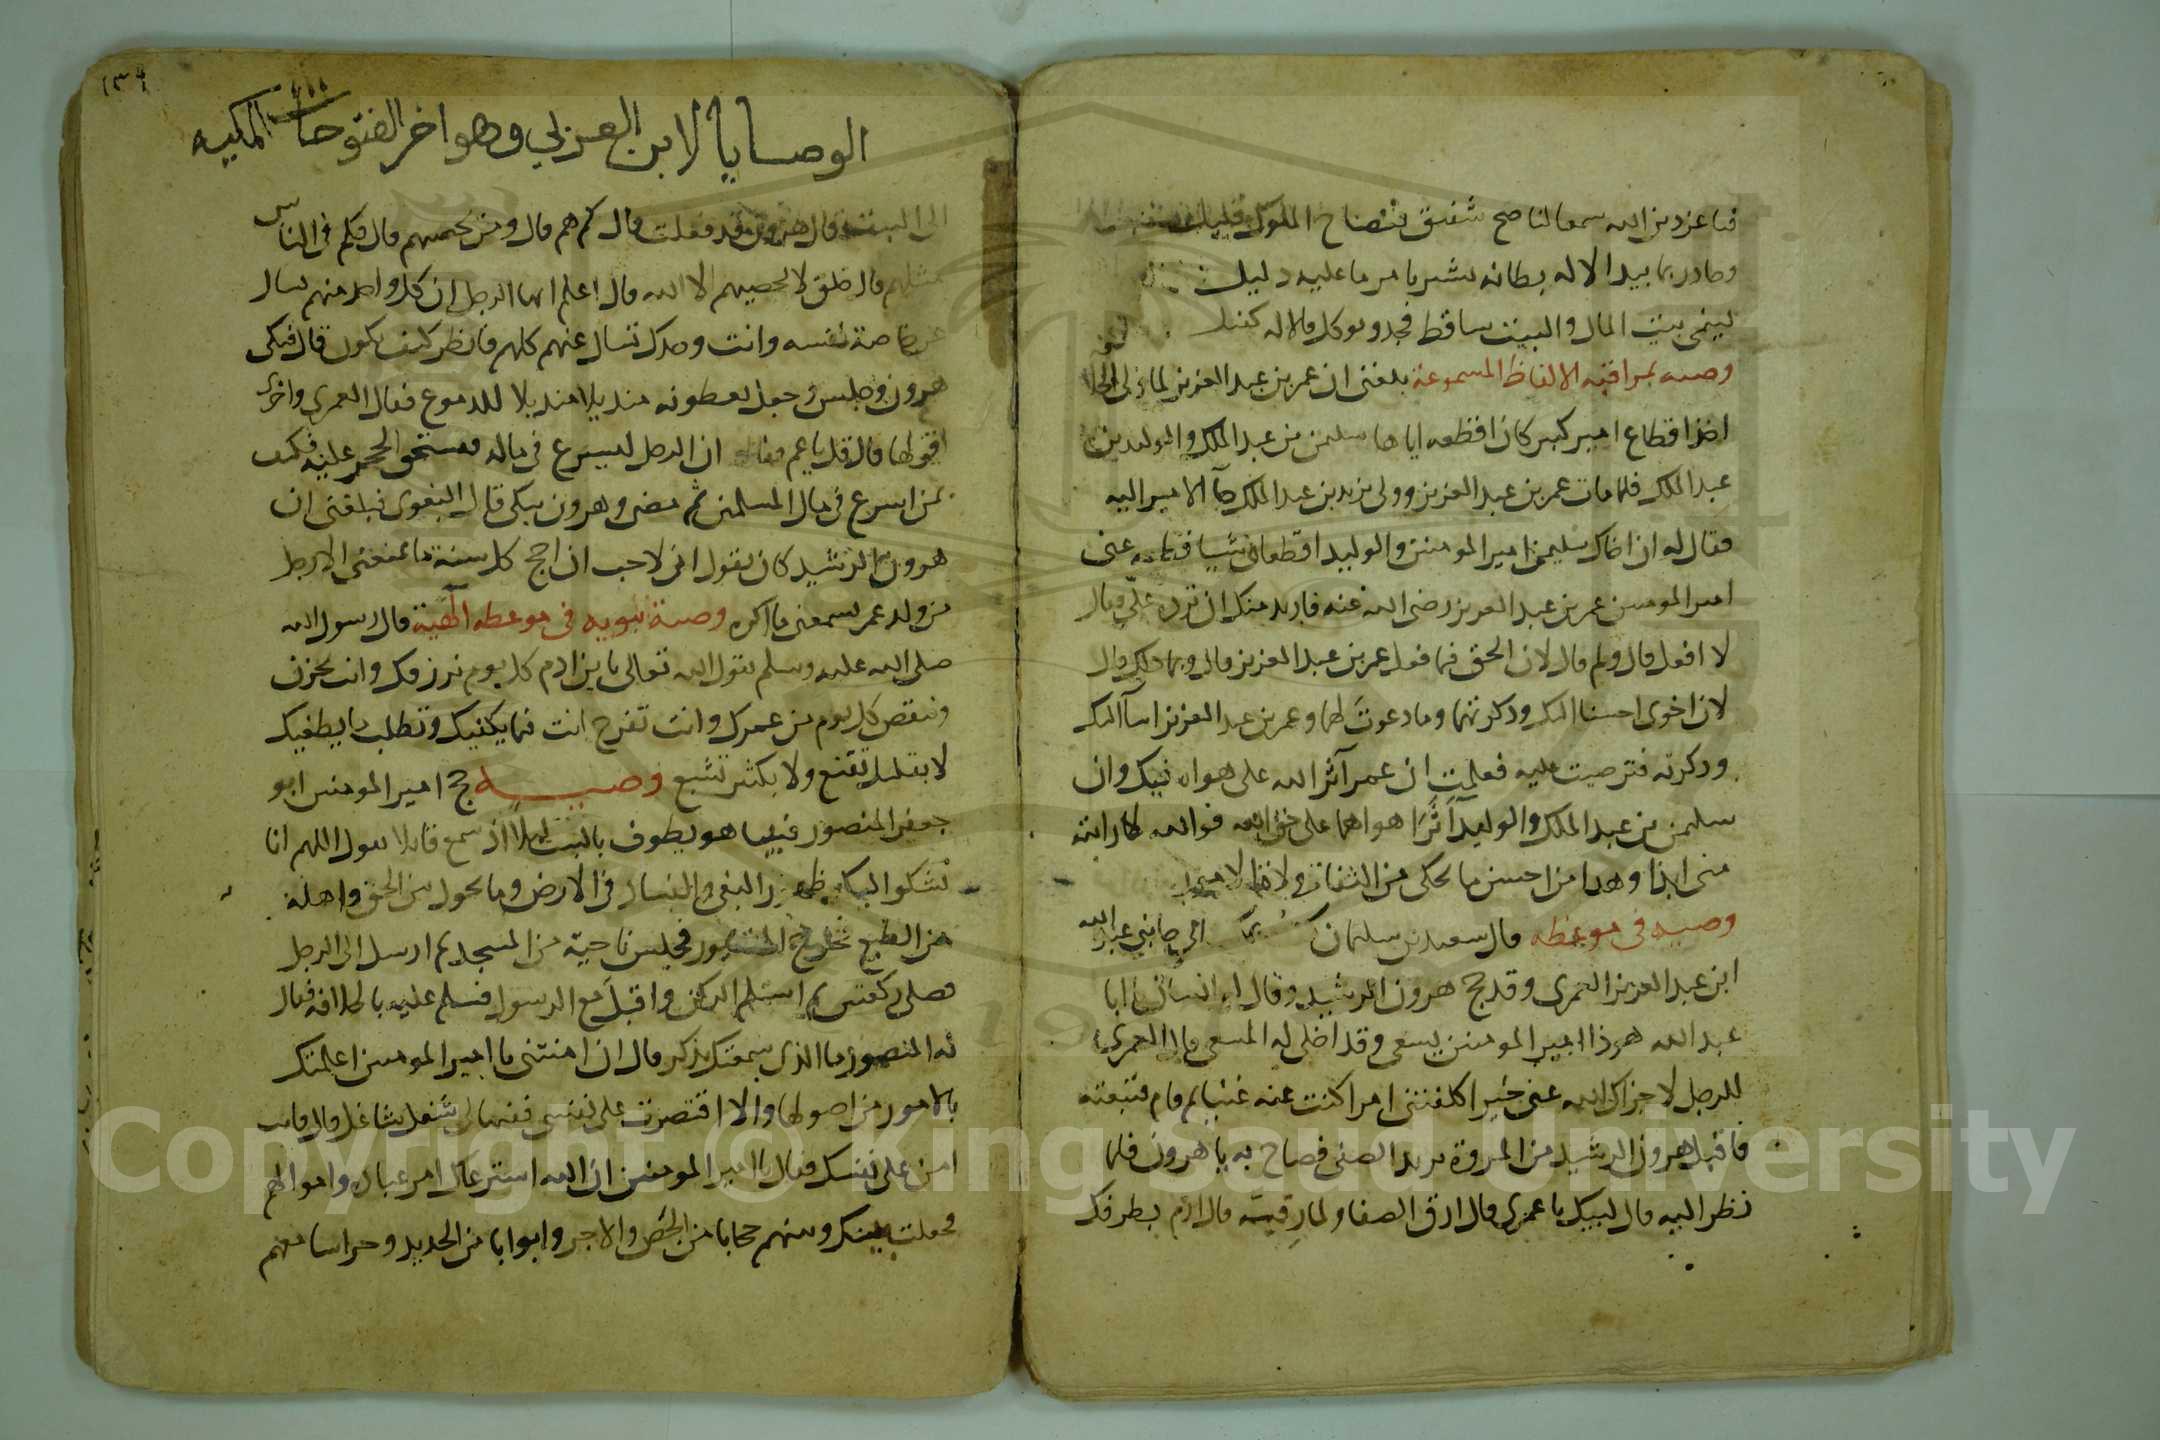 فيا عز دين الله سمعا لناصح شفيق فنصاح الملوك قليل
وحاذر بتاييد الاله بطانه تشير بامر ما عليه دليل
لينمى بيت المال والبيت ساقط فجد وتوكل فالاله كفيل
وصيه بمراقبه الالفاظ المسموعة بلغنى ان عمر بن عبد العزيز لما ولى الخلافة
اخذ اقطاع امير كبير كان اقطعه اياها سليمن بن عبد الملك والوليد بن
عبد الملك فلما مات عمر بن عبد العزيز وولى يزيد بن عبد الملك جآ الامير اليه
فقال له ان اخاك سليمن امير المومنين والوليد اقطعانى شيا قطعه عنى
امير المومنين عمر بن عبد العزيز رضى الله عنه فاريد منك ان ترده علىّ فقال
لا افعل قال ولم قال لان الحق فيما فعل عمر بن عبد العزيز قال وبما ذلك قال
لان اخوى احسنا اليك وذكرتهما وما دعوتَ لهما وعمر بن عبد العزيز اسآ اليك
وذكرته فترضيت عليه فعلمت ان عمر آثر الله على هواه فيك وان
سليمن بن عبد الملك والوليد آثرَا هواهما على حق الله فوالله لا رايته
منى ابدا وهذا من احسن ما يحكى من
وصيه فى موعظه قال سعيد بن سليمان كنت بمكة الى جانبى عبد الله
ابن عبد العزيز العمرى وقد حج هرون الرشيد وقال له انسان يا ابا
عبد الله هوذا امير المومنين يسعى وقد اخلى له المسعى قال العمرى
للرجل لا جزاك الله عنى خيرا كلفتنى امرا كنت عنه غنيا ثم قام فتبعته
فاقبل هرون الرشيد من المروة يريد الصفى فصاح به يا هرون فلما
نظر اليه قال لبيك يا عمرى قال ارق الصفا ولما رقيته قال ارم بطرفك
١٣٩
الوصايا لابن العربي وهو اخر الفتوحات المكيه
الى البيت قال هرون قد فعلت قال كم هم قال ومن يحصيهم قال فكم فى الناس
مثلهم قال خلق لا يحصيهم الا الله قال اعلم ايها الرجل ان كل واحد منهم يسال
عن خاصة نفسه وانت وحدك تسال عنهم كلهم فانظر كيف تكون قال فبكى
هرون وجلس وجعل يعطونه منديلا منديلا للدموع فقال العمرى واخرى
اقولها قال قل يا عم فقال ان الرجل ليسرع فى ماله فيستحق الحجر عليه فكيف
بمن اسرع فى مال المسلمين ثم مضى وهرون يبكى قال البغوى فبلغنى ان
هرون الرشيد كان يقول انى لاحب ان احج كل سنة ما يمنعنى الا رجل
من ولد عمر يسمعنى ما اكره وصية نبويه فى موعظه الٓهية قال رسول الله
صلى الله عليه وسلم يقول الله تعالى يابن ادم كل يوم نرزقك وانت تحزن
وننقص كل يوم من عمرك وانت تفرح انت فيما يكفيك وتطلب ما يطغيك
لا بقليل تقنع ولا بكثير تشبع وصيه حج امير المومنين ابو
جعفر المنصور فبينا هو يطوف بالبيت ليلا اذ سمع قايلا يقول اللهم انا
نشكوا اليك ظهور البغى والفساد فى الارض وما يحول بين الحق واهله
من الطمع فخرج المنصور فجلس ناحية من المسجد ثم ارسل الى الرجل
فصلى ركعتين ثم استلم الركن واقبل مع الرسول فسلم عليه بالخلافة فقال
له المنصور ما الذى سمعتك تذكر قال ان امنتنى يا امير المومنين اعلمتك
بالامور من اصولها والا اقتصرت على نفسى ففيها لى شغل شاغل قال فانت
امن على نفسك فقال يا امير المومنين ان الله استرعاك امر عباده واموالهم
فجعلت بينك وبينهم حجابا من الجص والاجر وابوابا من الحديد وحراسا معهم
Copyright © King Saud University